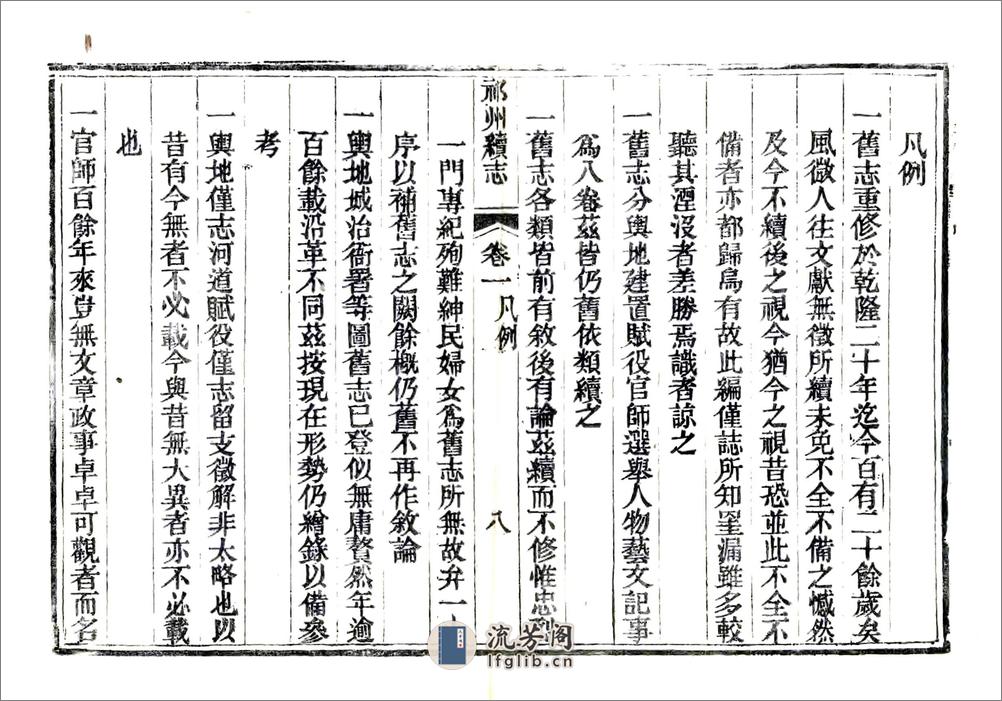 凡例
一舊志重修於乾隆二十年迄今百有二十餘歲矣
風微人往文獻無徵所續未免不全不備之憾然
及今不續後之視今猶今之視昔恐並此不全不
備者亦都歸烏有故此編僅誌所知罣漏雖多較
聽其湮沒者差勝焉識者諒之
一舊志分輿地建置賦役官師選舉人物藝文記事
爲八卷茲皆仍舊依類續之
一舊志各類皆前有敘後有論茲續而不修惟忠烈
祁州續志 卷一凡例 八
一門專紀殉難紳民婦女爲舊志所無故弁一小
序以補舊志之闕餘概仍舊不再作敘論
一輿地城治衙署等圖舊志已登似無庸贅然年逾
百餘載沿革不同茲按現在形勢仍繪錄以備參
考
一輿地僅志河道賦役僅志留支徵解非太略也以
昔有今無者不必載今與昔無大異者亦不必載
也
一官師百餘年來豈無文章政事卓卓可觀者而名
流芳阁
lfglib.cn